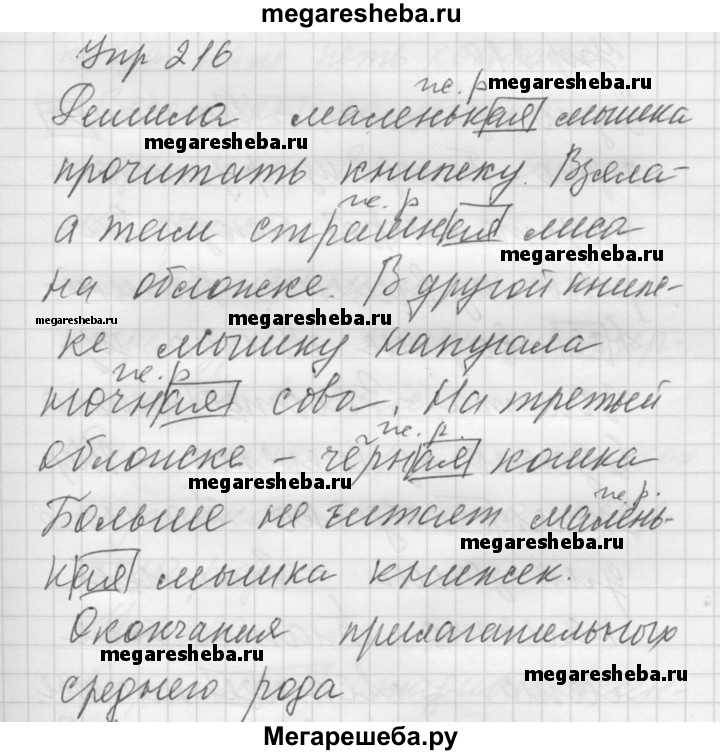 megaresheba.ru
Упр 216
же. р megaresheba.ru
Решила маленькая мышка
megaresheba.ru
прочитать книжку. Взяла-
же. р
а там страшная лиса
megaresheba.ru
на обложке. В другой книж-
megaresheba.ru megaresheba.ru
ке мышку напугала
же. р
ночная сова. На третьей
же. р.
обложке - чёрная кошка
megaresheba.ru
же. р.
Больше не читает малень-
megaresheba.ru
кая мышка книжек.
Окончания прилагательных
megaresheba.ru
megaresheba.ru
среднего рода
Мегарешеба.ру